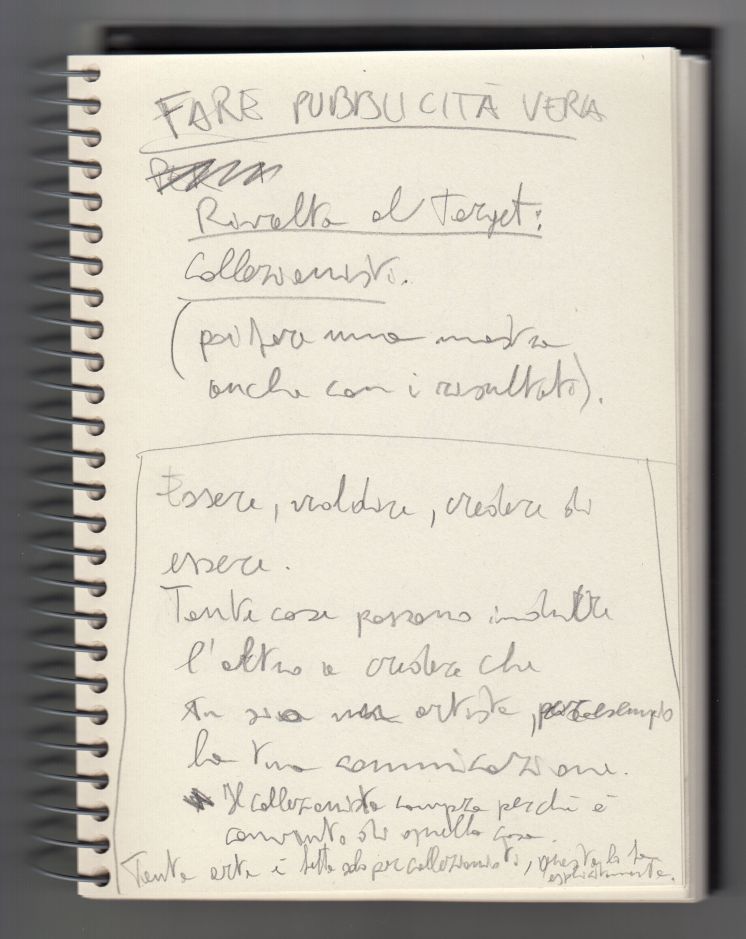 FARE PUBBLICITÀ VERA
Rivolta al Target:
Collezionisti.
(poi fare una mostra
anche con i risultati).
Essere, validare, credere di
essere.
Tante cose possono indurre
l'altro a credere che
tu sia un artista, per esempio
la tua comunicazione.
Il collezionista compra perché è
convinto di quella cosa.
Tanta arte è fatta solo per collezionisti, questa lo fa
esplicitamente.